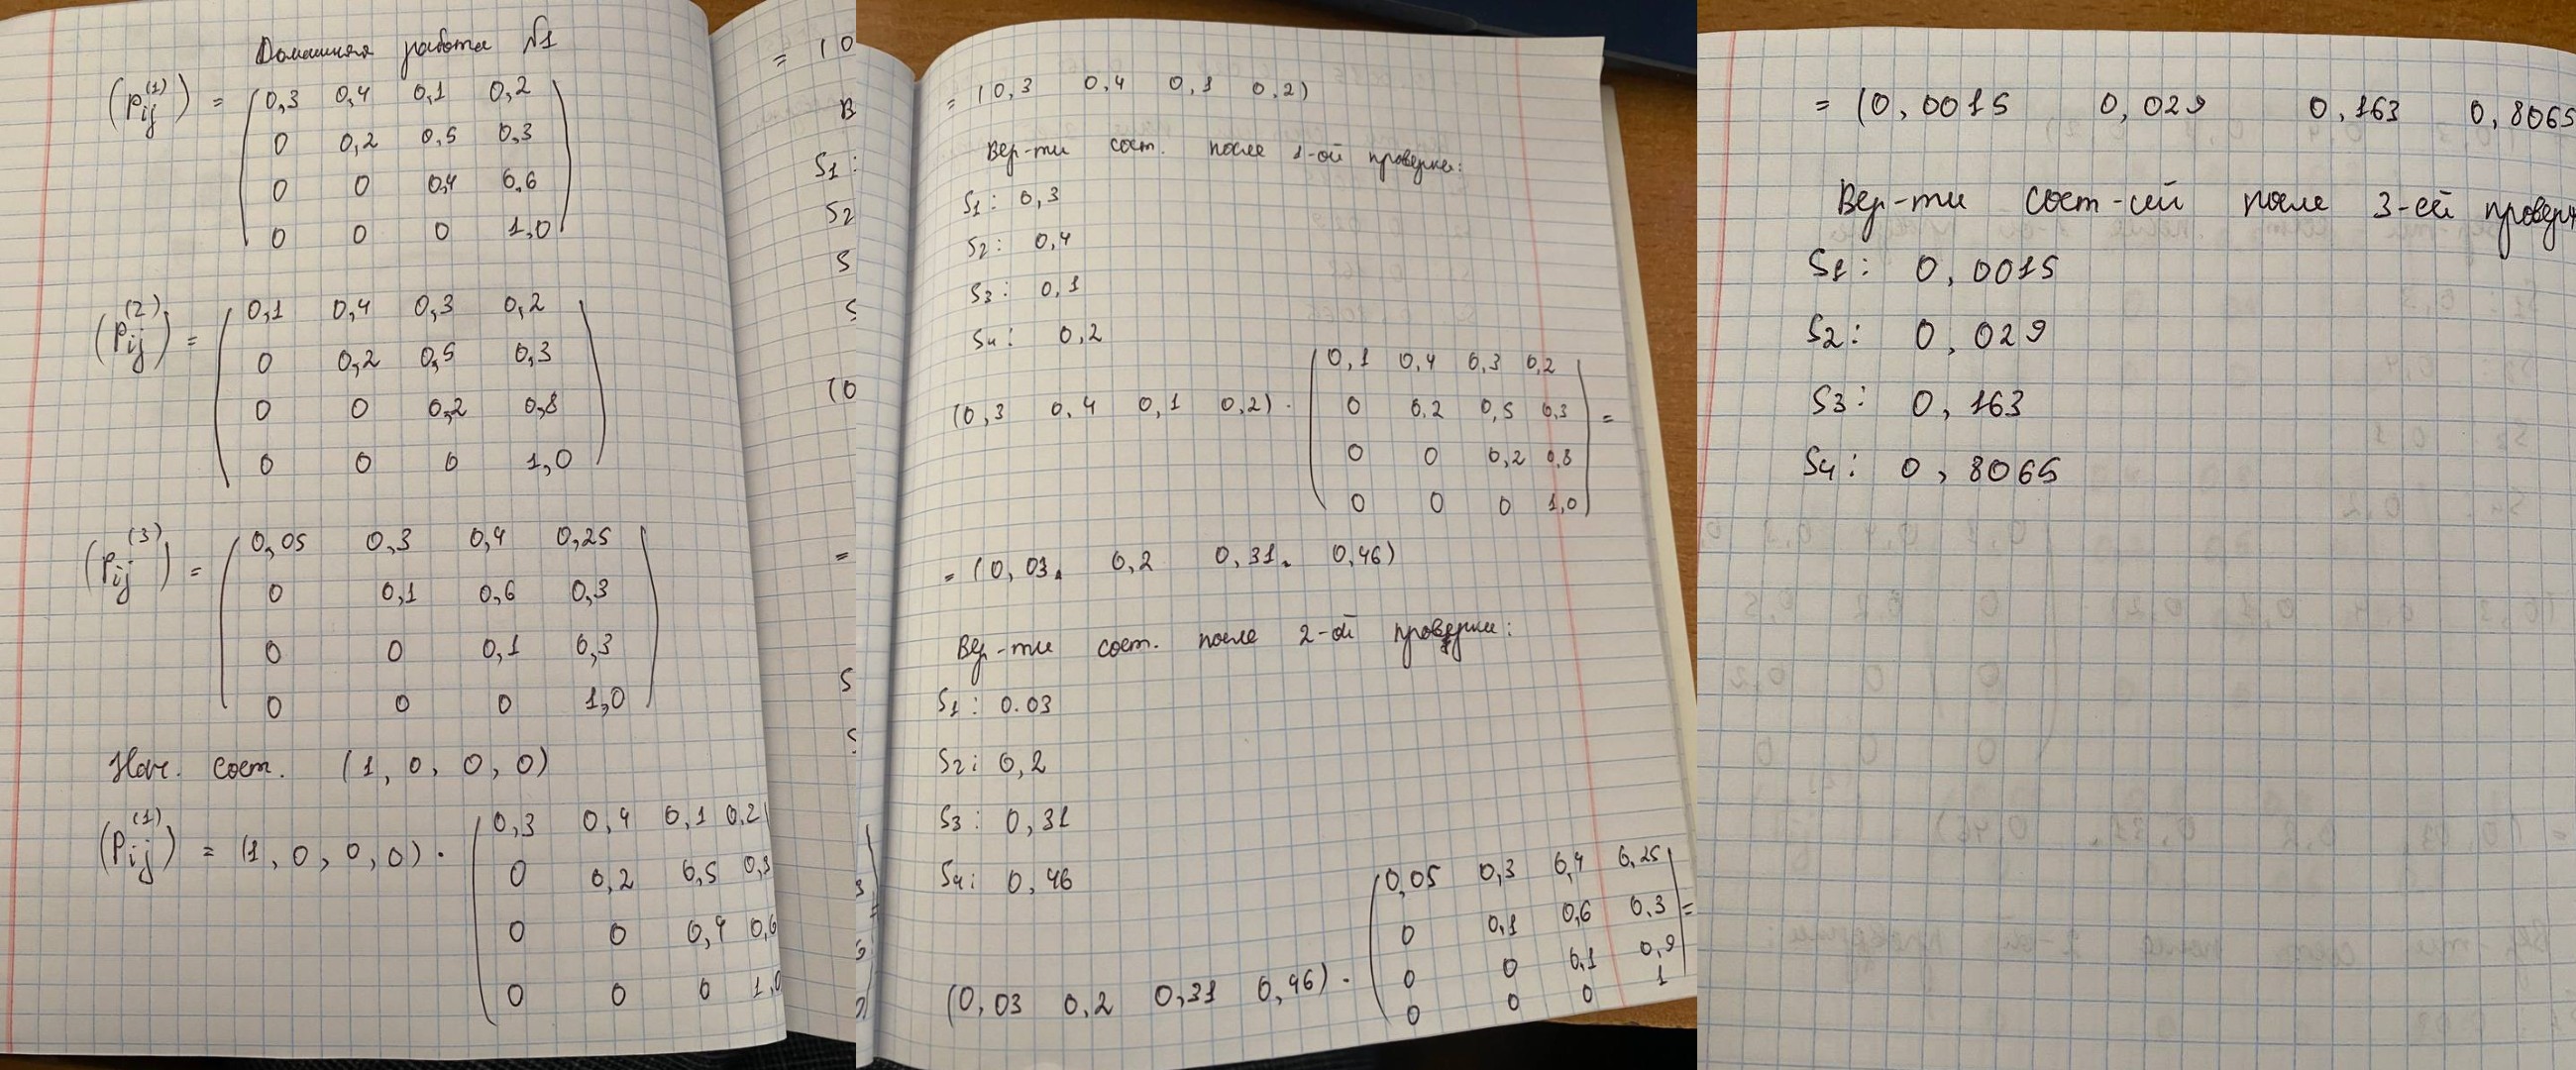 Домашняя работа №1
(p_ij^(1)) = (0,3 0,4 0,1 0,2
0 0,2 0,5 0,3
0 0 0,4 0,6
0 0 0 1,0)
(p_ij^(2)) = (0,1 0,4 0,3 0,2
0 0,2 0,5 0,3
0 0 0,2 0,8
0 0 0 1,0)
(p_ij^(3)) = (0,05 0,3 0,4 0,25
0 0,1 0,6 0,3
0 0 0,1 0,3
0 0 0 1,0)
Нач. сост. (1, 0, 0, 0)
(p_ij^(1)) = (1, 0, 0, 0) · (0,3 0,4 0,1 0,2
0 0,2 0,5 0,3
0 0 0,4 0,6
0 0 0 1,0
= (0
В
S1:
S2
S
S
(0
=
S
S
= (0,3 0,4 0,1 0,2)
Вер-ти сост. после 1-ой проверки:
S1: 0,3
S2: 0,4
S3: 0,1
S4: 0,2
(0,3 0,4 0,1 0,2) · (0,1 0,4 0,3 0,2
0 0,2 0,5 0,3
0 0 0,2 0,8
0 0 0 1,0) =
= (0,03, 0,2 0,31, 0,46)
Вер-ти сост. после 2-ой проверки:
S1: 0.03
S2: 0,2
S3: 0,31
S4: 0,46
(0,03 0,2 0,31 0,46) · (0,05 0,3 0,4 0,25
0 0,1 0,6 0.3
0 0 0,1 0,9
0 0 0 1) =
= (0,0015 0,029 0,163 0,8065
Вер-ти сост-ий после 3-ей проверк
S1: 0,0015
S2: 0,029
S3: 0,163
S4: 0,8065